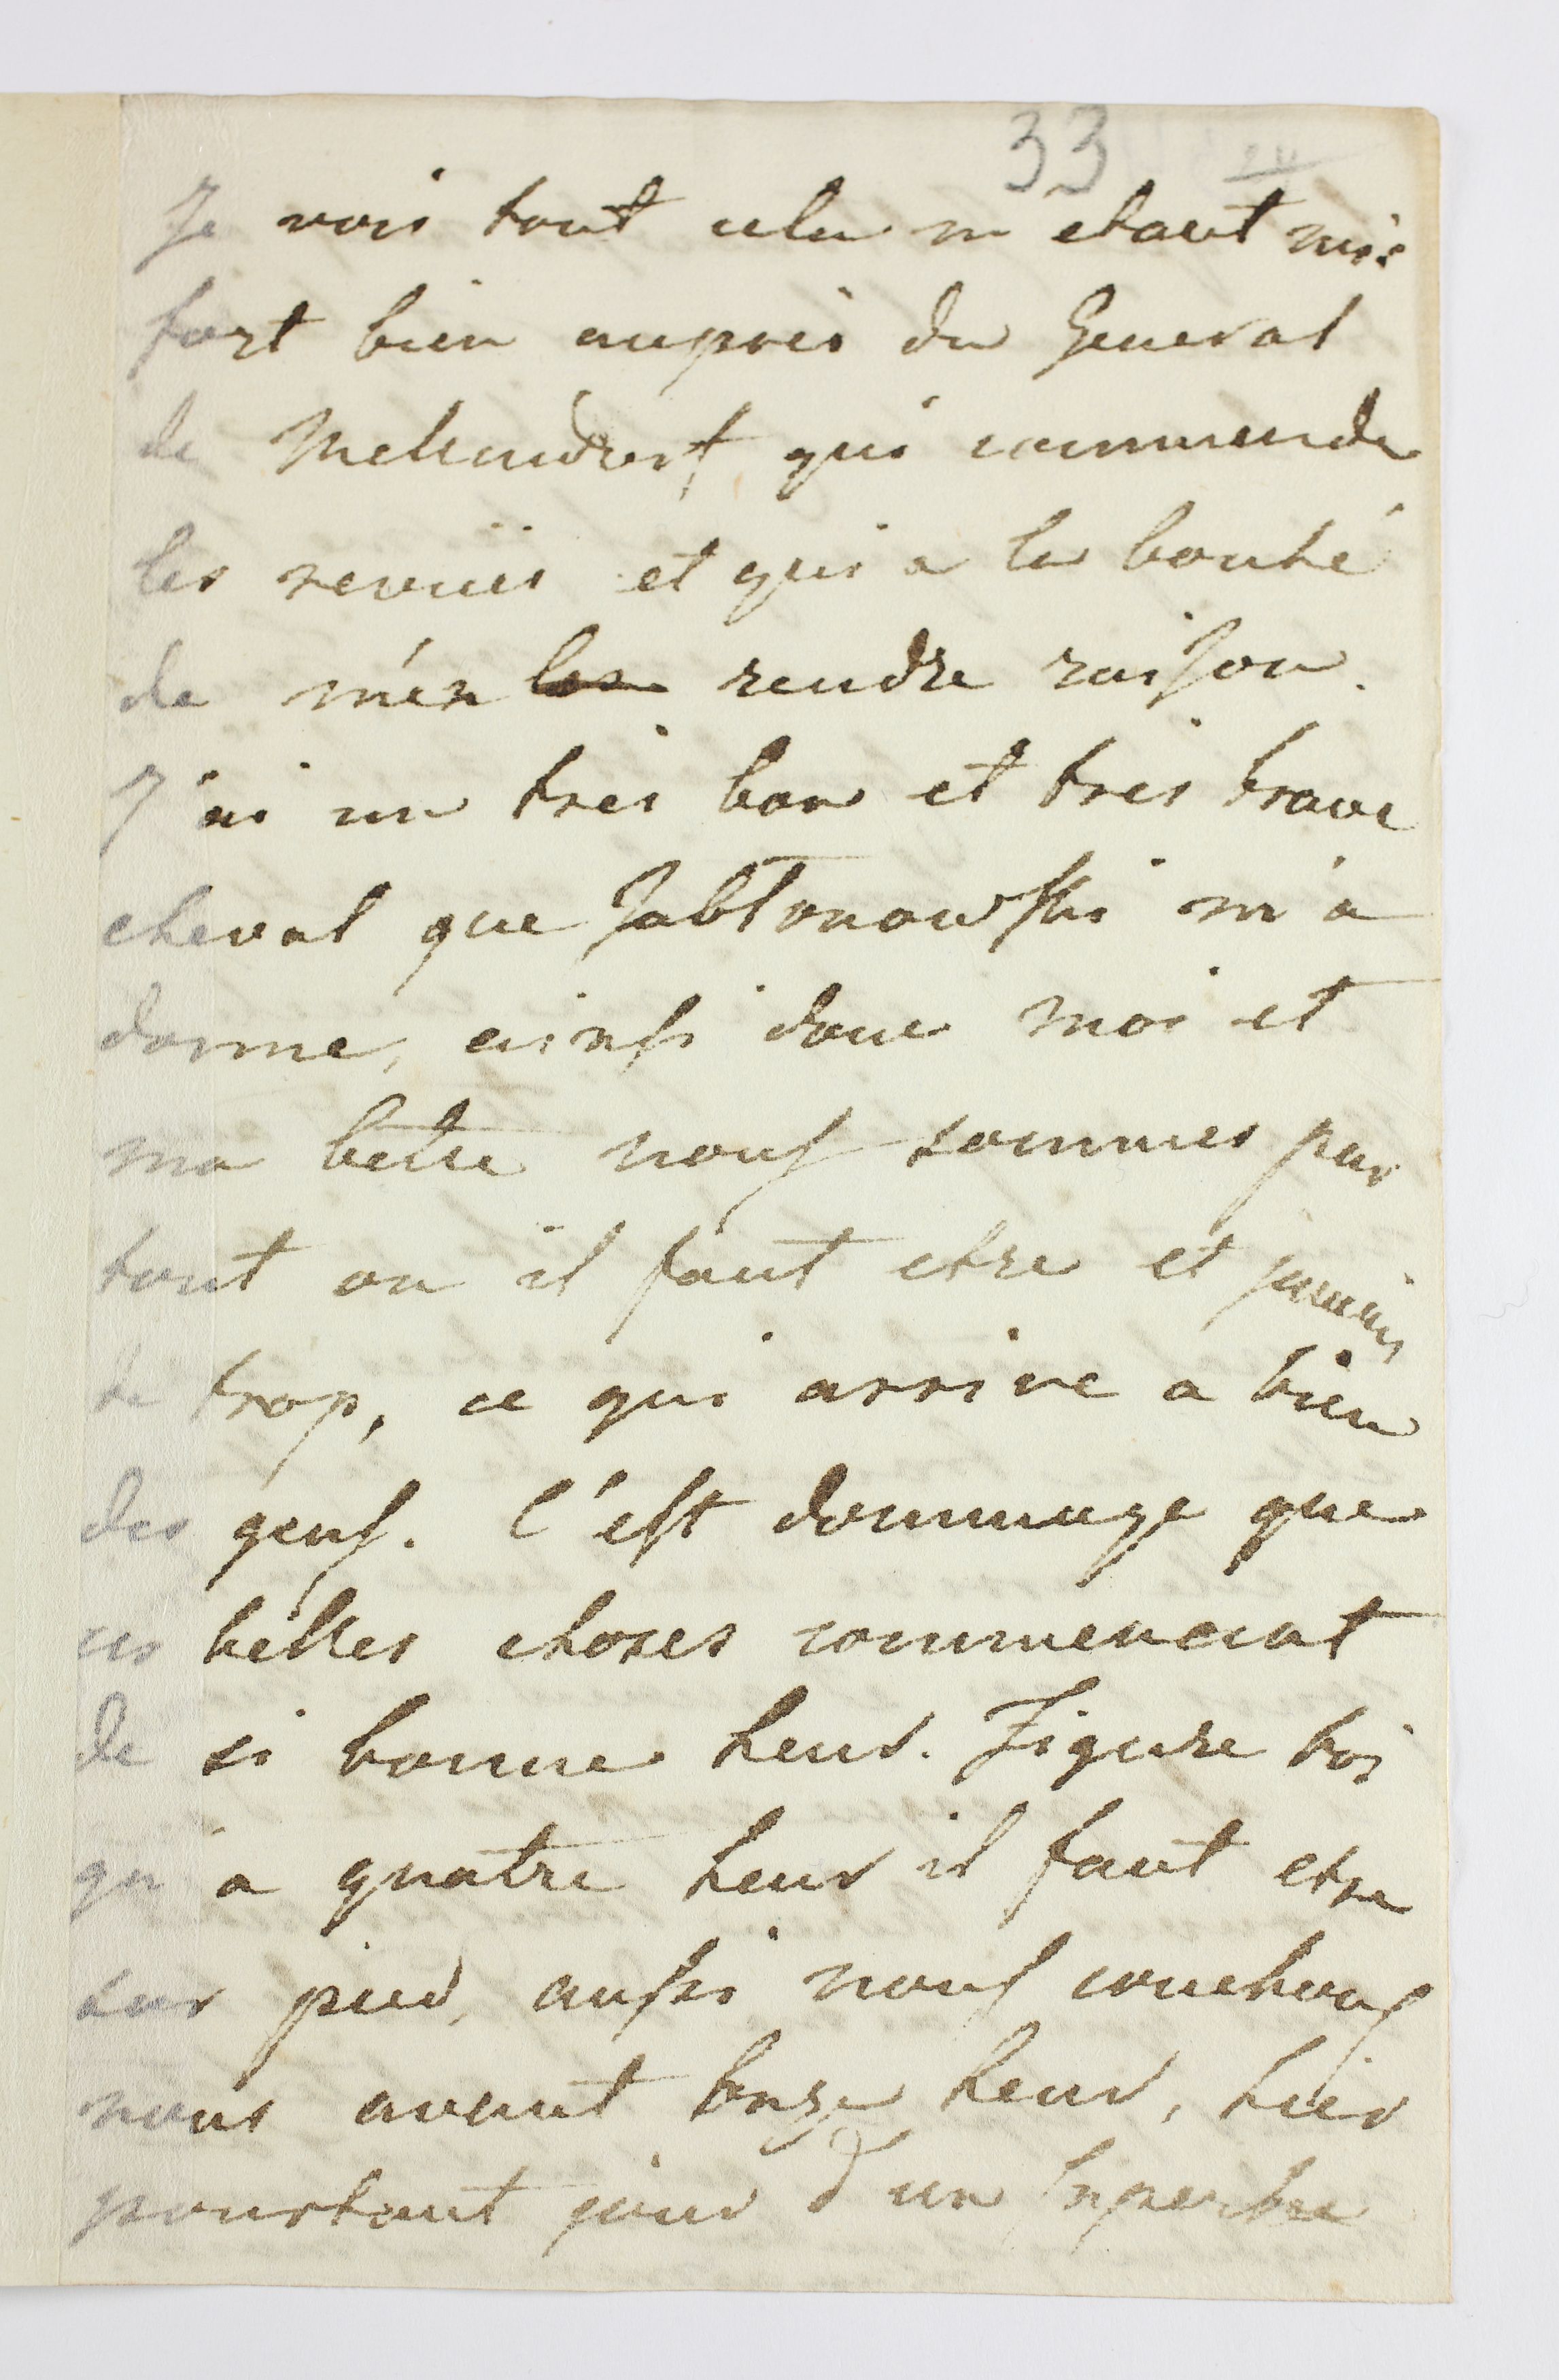 33
Je vois tout cela m etant mis
fort bien aupres du General
de qui commende
les revuës et qui a la bonté
de m'en rendre raison.
J'ai un tres bon et tres brave
cheval que Jabłonowski m'a
donne, ainsi donc moi et
ma bette nous sommes par
tout ou il faut etre et jamais
de trop, ce qui arrive a bien
des gens. C'est dommage que
ces belles choses commencent
de si bonne heur. Figure toi
qu a quatre heur il faut etre
sur pied, aussi nous couchons
nous avant onze heur, hier
pourtant jour d'un superbe